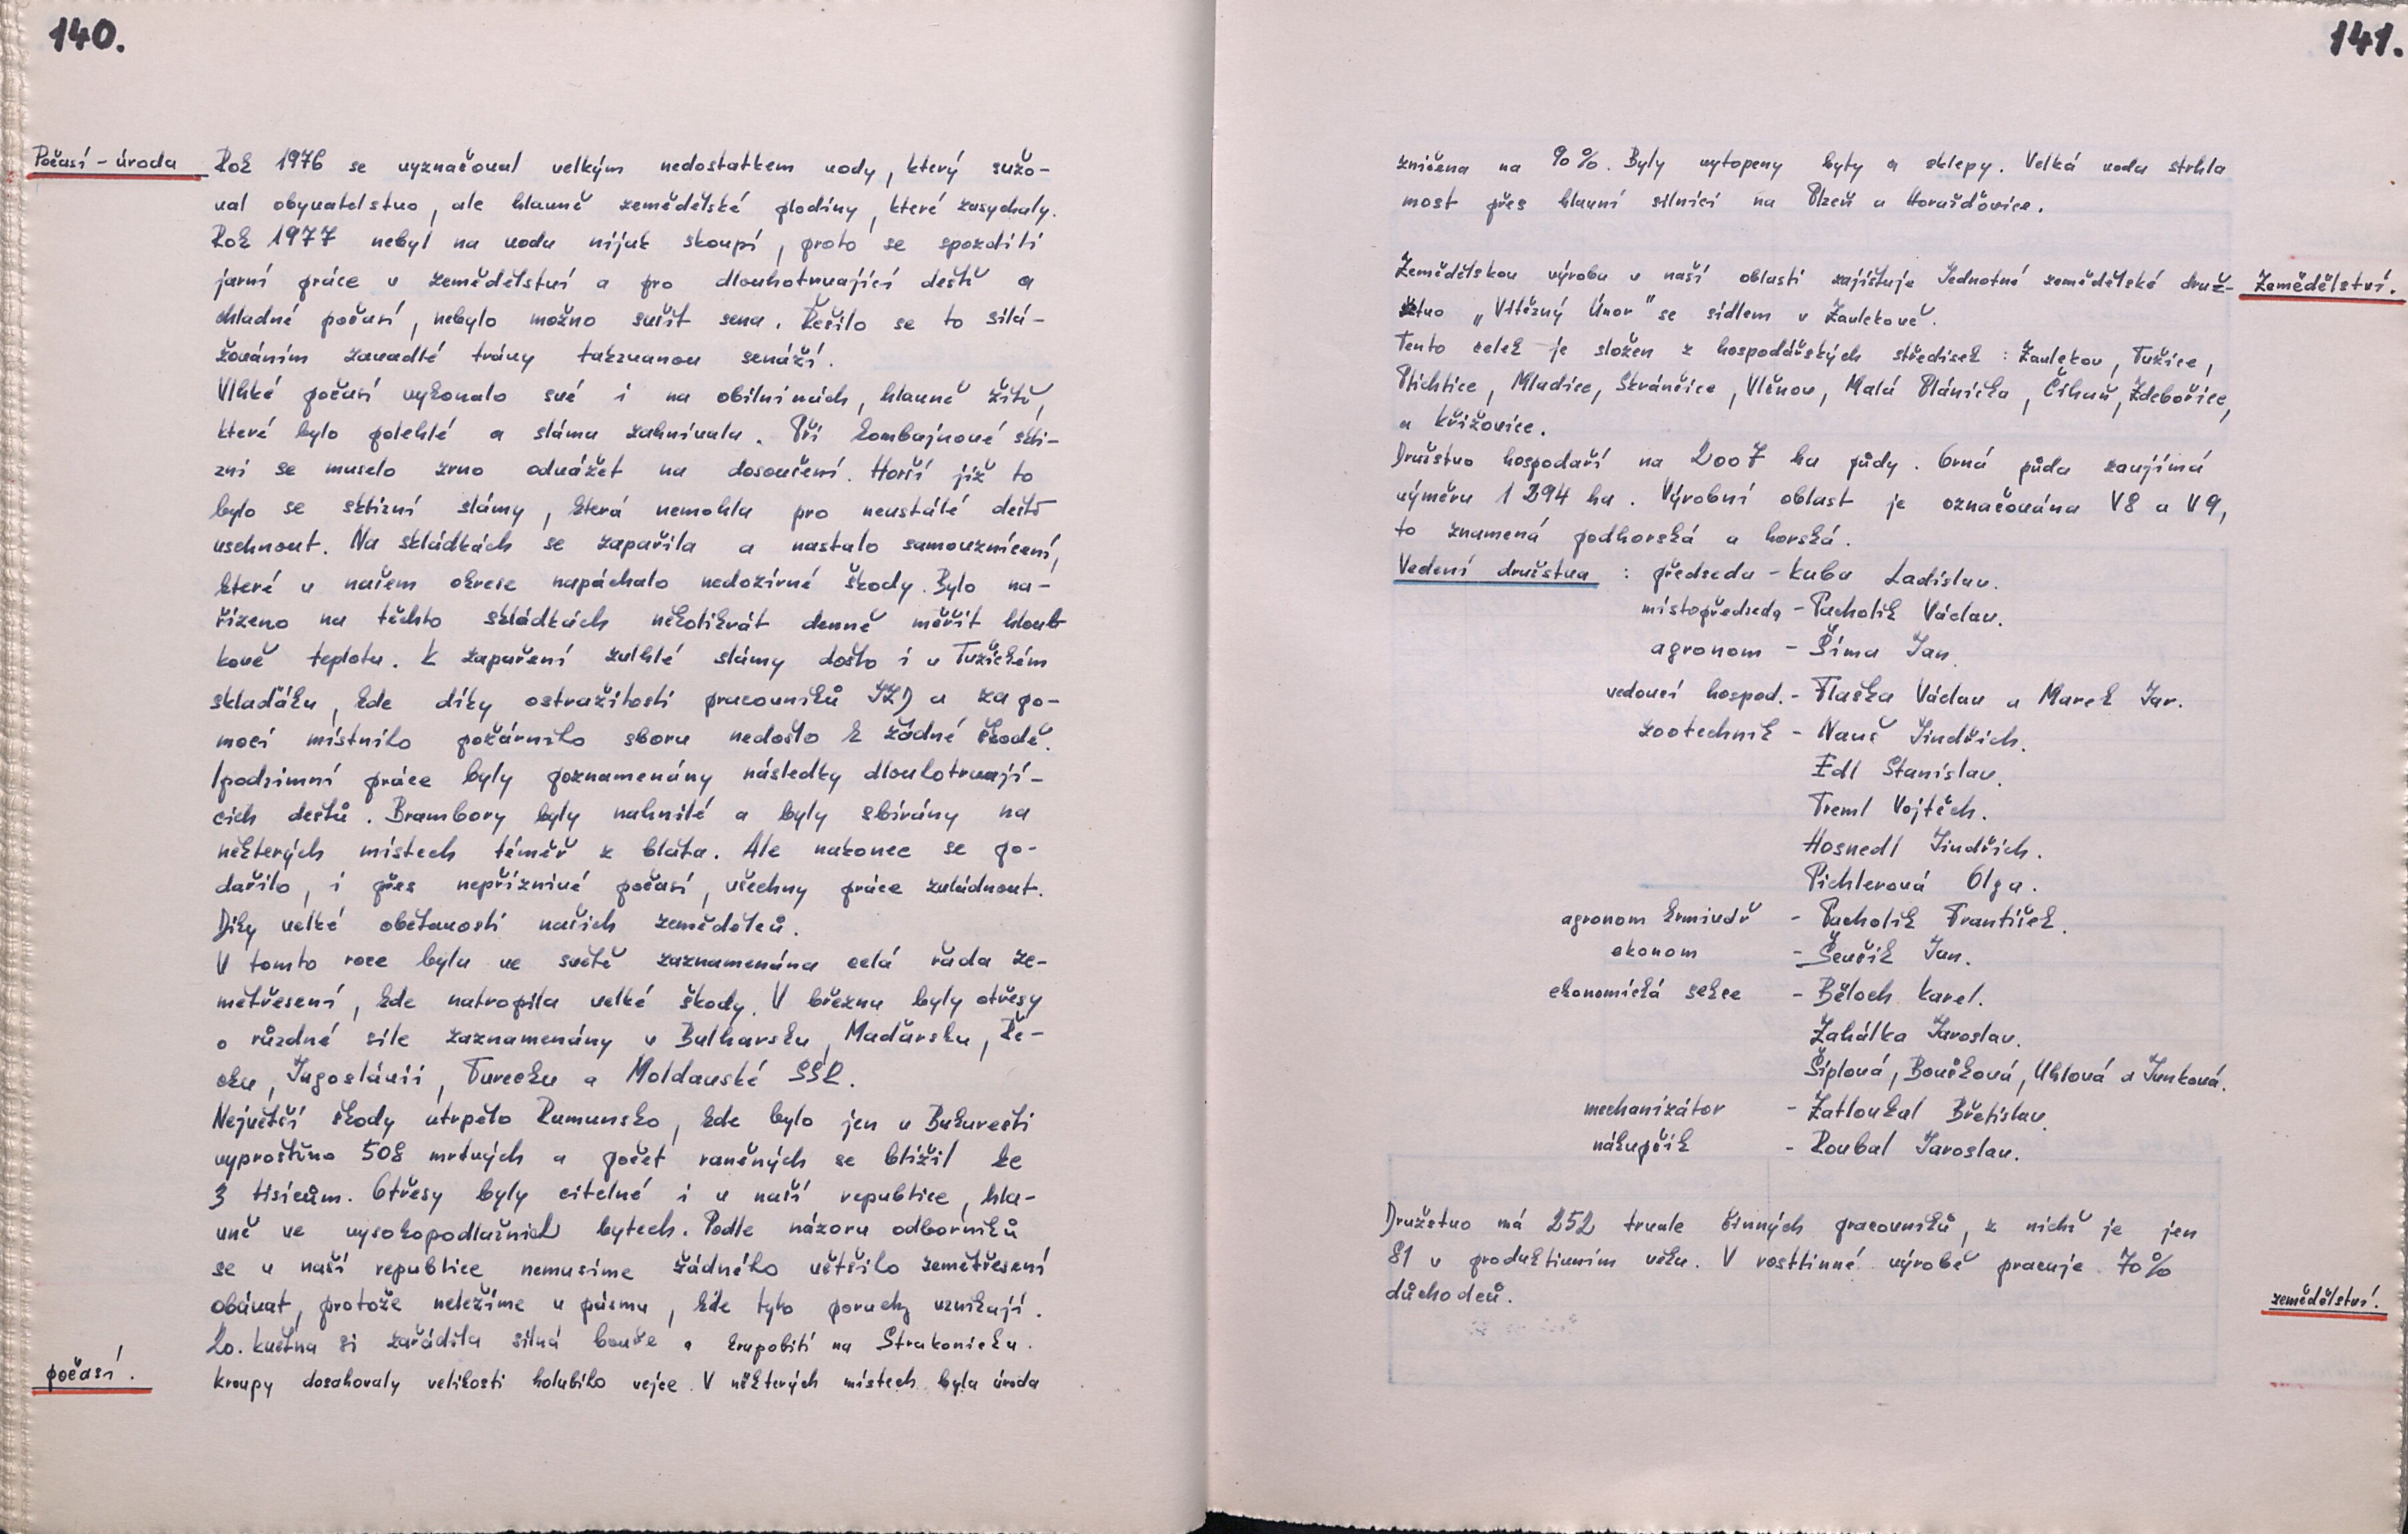 140.
Počasí - úroda
Rok 1976 se vyznačoval velkým nedostatkem vody, který sužo-
val obyvatelstvo, ale hlavně zemědělské plodiny, které zasychaly.
Rok 1977 nebyl na vodu nijak skoupí, proto se spozdili
jarní práce v zemědělství a pro dlouhotrvající deště a
chladné počasí, nebylo možno sušit sena. Řešilo se to silá-
žováním zavadlé trávy takzvanou senáží.
Vlhké počasí vykonalo své i na obilninách, hlavně žitě,
které bylo polehlé a sláma zahnívala. Při kombajnové skli-
zni se muselo zrno odvážet na dosoučení. Horší již to
bylo se sklizní slámy, která nemohla pro neustálé deště
uschnout. Na skládkách se zapařila a nastalo samovznícení,
které v našem okrese napáchalo nedozírné škody. Bylo na-
řízeno na těchto skládkách několikrát denně měřit hloub
kově teplotu. K zapaření zvlhlé slámy došlo i v Tužickém
skladáku, kde díky ostražitosti pracovníků JZD a za po-
moci místního požárního sboru nedošlo k žádné škodě.
I podzimní práce byly poznamenány následky dlouhotrvají-
cích dešťů. Brambory byly nahnilé a byly sbírány na
některých místech téměř z bláta. Ale nakonec se po-
dařilo, i přes nepříznivé počasí, všechny práce zvládnout.
Díky velké obětavosti našich zemědělců.
V tomto roce byla ve světě zaznamenána celá řada ze-
mětřesení, kde natropila velké škody. V březnu byly otřesy
o různé síle zaznamenány v Bulharsku, Maďarsku, Ře-
cku, Jugoslávii, Turecku a Moldavské SSR.
Největší škody utrpělo Rumunsko, kde bylo jen v Bukurešti
vyproštěno 508 mrtvých a počet raněných se blížil ke
3 tisícům. Otřesy byly citelné i v naší republice, hla-
vně ve vysokopodlažních bytech. Podle názoru odborníků
se v naší republice nemusíme žádného většího zemětřesení
obávat, protože neležíme v pásmu, kde tyto poruchy vznikají.
20. května si zařádila silná bouře a krupobití na Strakonicku.
počasí.
Kroupy dosahovaly velikosti holubího vejce. V některých místech byla úroda
141.
zničena na 90%. Byly vytopeny byty a sklepy. Velká voda strhla
most přes hlavní silnici na Plzeň a Horažďovice.
Zemědělství.
Zemědělskou výrobu v naší oblasti zajišťuje Jednotné zemědělské druž-
stvo "Vítězný Únor" se sídlem v Zavlekově.
Tento celek je složen z hospodářských středisek : Zavlekov, Tužice,
Plichtice, Mladice, Skránčice, Vlčnov, Malá Plánička, Číhaň, Zdebořice,
a Křížovice.
Družstvo hospodaří na 2007 ha půdy. Orná půda zaujímá
výměru 1 294 ha. Výrobní oblast je označována V8 a V9,
to znamená podhorská a horská.
Vedení družstva : předseda - Kuba Ladislav.
místopředseda - Pacholík Václav.
agronom - Šíma Jan.
vedoucí hospod. - Flaška Václav a Marek Jar.
zootechnik - Nauš Jindřich.
Edl Stanislav.
Treml Vojtěch.
Hosnedl Jindřich.
Pichlerová Olga.
agronom krmivář - Pacholík František.
ekonom - Ševčík Jan.
ekonomická sekce - Běloch Karel.
Zahálka Jaroslav.
Šiplová, Boučková, Uhlová a Junková.
mechanizátor - Zatloukal Břetislav.
nákupčík - Roubal Jaroslav.
Družstvo má 252 trvale činných pracovníků, z nichž je jen
81 v produktivním věku. V rostlinné výrobě pracuje 70%
důchodců.
zemědělství.